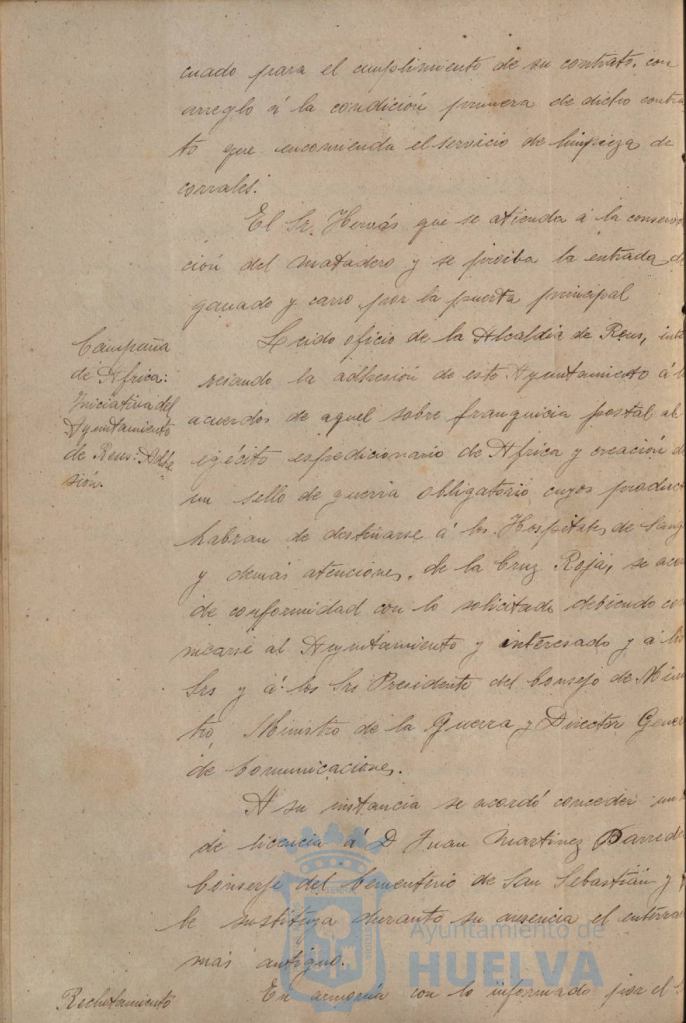 cuado para el cumplimiento de su contrato, con
arreglo á la condición primera de dicho contra
to que encomienda el servicio de limpieza de
corrales.
El Sr. Hervás que se atienda á la conserva
ción del matadero y se proiba la entrada d
ganado y carro por la puerta principal
Campaña
de Africa:
Iniciativa del
Ayuntamiento
de Reus: Adhe
sión.
Leido oficio de la Alcaldía de Reus, inte
resando la adhesión de este Ayuntamiento á l
acuerdos de aquel sobre franquicia postal al
egécito espedicionario de Africa y creación d
un sello de guerra obligatorio cuyos produc
habran de destinarse á los Hospitales de Sang
y demás atenciones, de la Cruz Roja, se aco
de conformidad con lo solicitado debiendo co
nicarse al Ayuntamiento y interesado y á los
Srs y á los Srs Presidente del Consejo de Min
tro, Ministro de la Guerra y Director Gener
de Comunicaciones.
A su instancia se acordó conceder un
de licencia á D Juan Martinez Barred
Conserje del Cementerio de San Sebastián y
le sustituya durante su ausencia el enterra
mas antiguo.
Rechetamiento
En armonía con lo informado por el
Ayuntamiento de
HUELVA